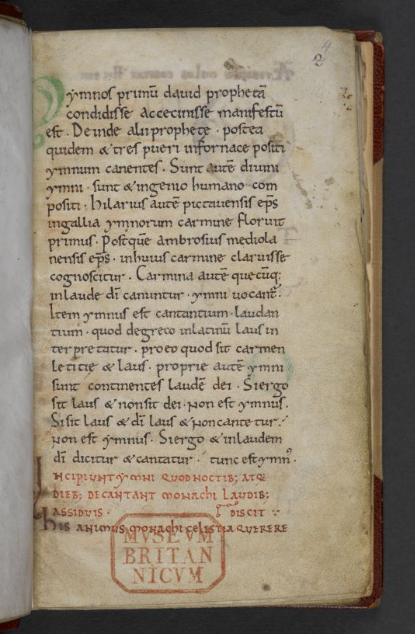 4
2
Ymnos primū david prophetā
condidisse ac cecinisse manifestū
est. Deinde alii prophetę. postea
quidem & tres pueri in fornace positi
ymnum canentes. Sunt autē divini
ymni. sunt & ingenio humano com
positi. hilarius autē pictavensis ep̄s
in gallia ymnorum carmine floruit
primus. Post quē ambrosius mediola
nensis ep̄s. in huius carmine claruisse
cognoscitur. Carmina autē quecūq;
in laude dī canuntur. ymni vocant̄.
Item ymnus est cantantium. laudan
tium. quod de greco in latinū laus in
terpretatur. pro eo quod sit carmen
letitię & laus. proprie autē ymni
sunt continentes laudē dei. Si ergo
sit laus & non sit dei. Non est ymnus.
Si sit laus & dī laus & non cantetur.
Non est ymnus. Si ergo & in laudem
dī dicitur & cantatur. tunc est ymn̄.
INCIPIUNT YMNI QUOD NOCTIB; ATQ;
DIEB; DECANTANT MONACHI LAUDIB;
ASSIDUIS. DISCIT
HIS ANIMUS MONACHI CELESTIA QUERERE
MVSEVM
BRITAN
NICVM